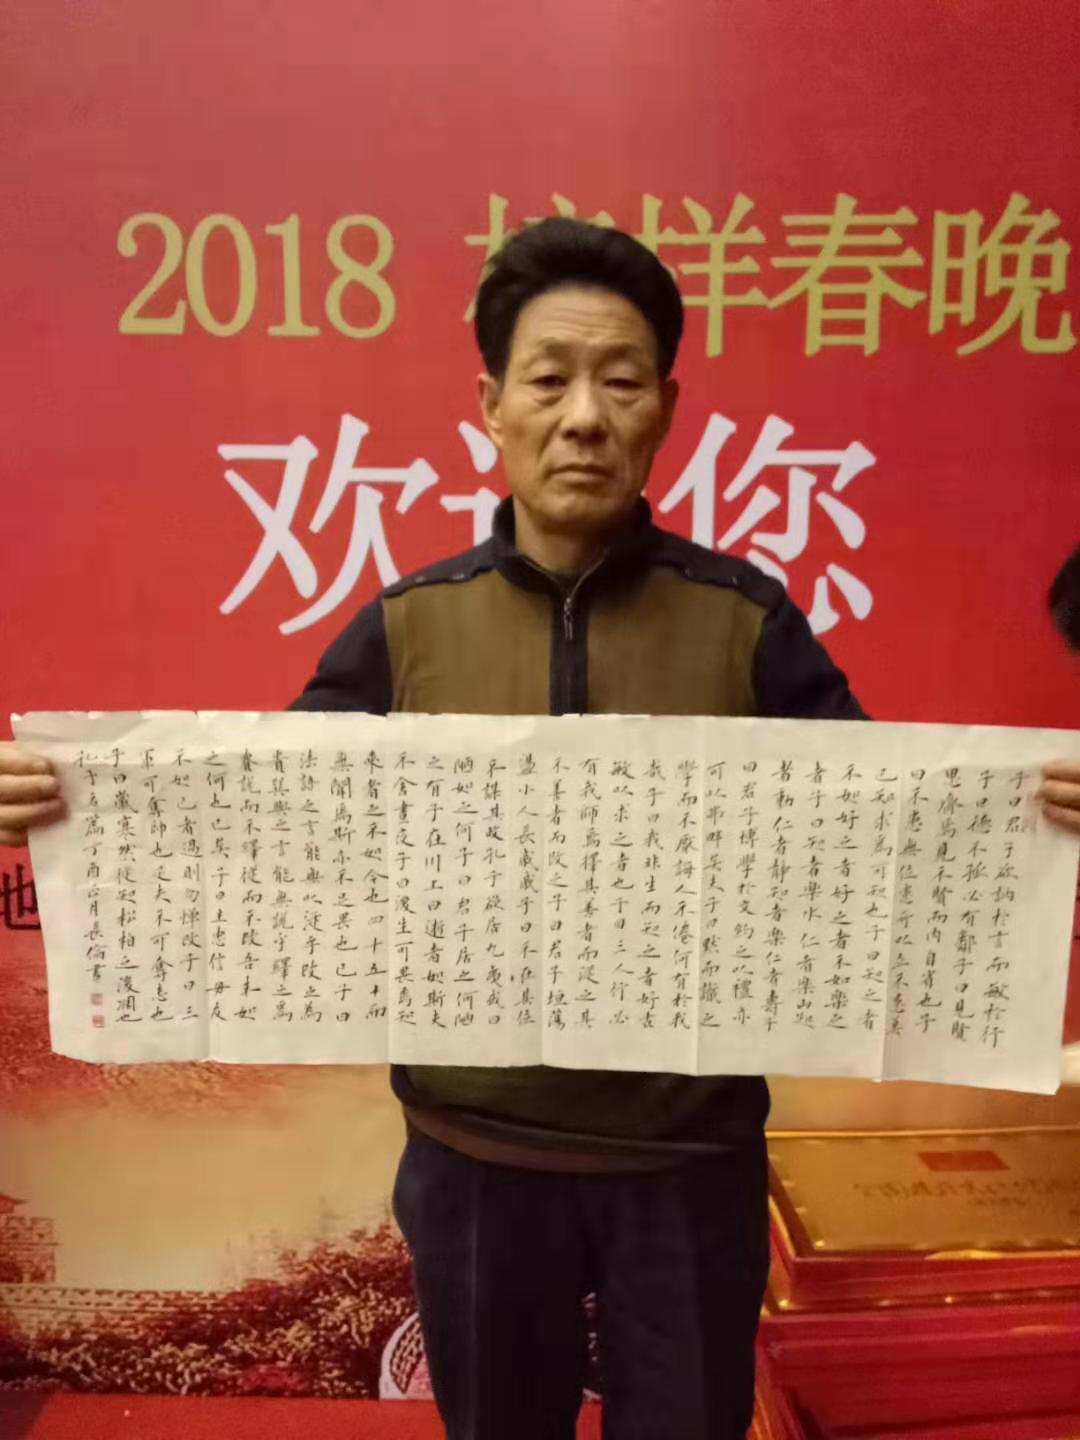 2018 榜样春晚
欢迎您
地
子曰君子欲訥於言而敏於行
子曰德不孤必有鄰子曰見賢
思齊焉見不賢而内自省也子
曰不患無位患所以立不患莫
己知求為可知也子曰知之者
不如好之者好之者不如樂之
者子曰知者樂水仁者樂山知
者動仁者靜知者樂仁者壽子
曰君子博學於文約之以禮亦
可以弗畔矣夫子曰默而識之
學而不厭誨人不倦何有於我
哉子曰我非生而知之者好古
敏以求之者也子曰三人行必
有我師焉擇其善者而從之其
不善者而改之子曰君子坦蕩
蕩小人長戚戚子曰不在其位
不謀其政孔子欲居九夷或曰
陋如之何子曰君子居之何陋
之有子在川上曰逝者如斯夫
不舍晝夜子曰後生可畏焉知
來者之不如今也四十五十而
無聞焉斯亦不足畏也已子曰
法語之言能無以從乎改之為
貴巽與之言能無說乎繹之為
貴說而不繹從而不改吾未如
之何也已矣子曰主忠信毋友
不如己者過則勿憚改子曰三
軍可奪帥也匹夫不可奪志也
子曰歲寒然後知松柏之後凋也
孔子名篇丁酉正月長倫書